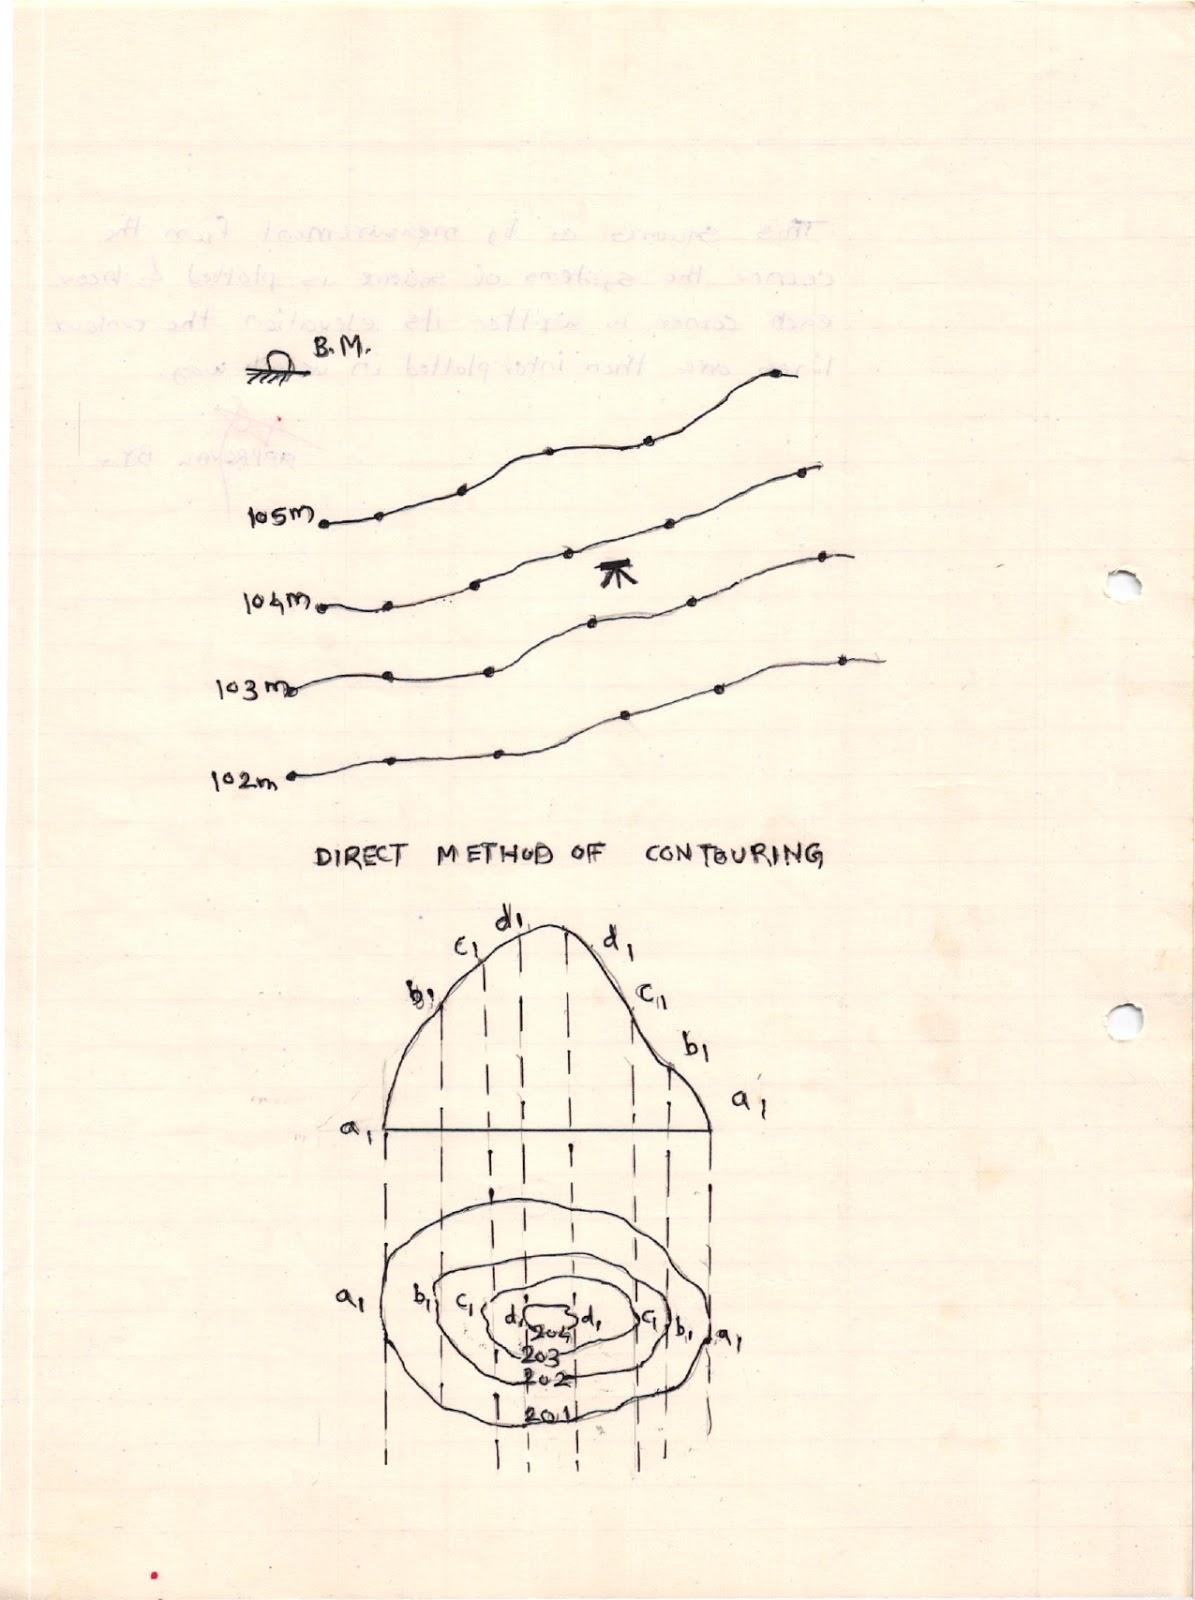 B.M.
105m
104m
103m
102m
DIRECT METHOD OF CONTOURING
d1
d1
c1
c11
b1
b1
a1
a1
a1
b1
c1
d1
d1
c1
b1
a1
204
203
202
201